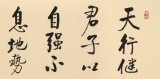 天行健
君子以
自强不
息地勢